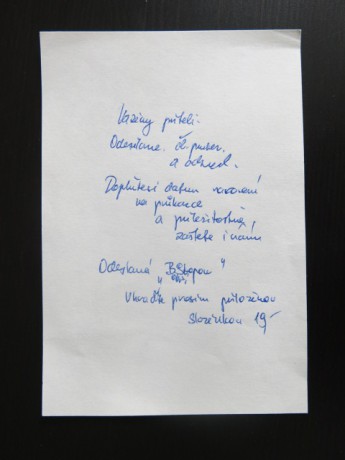 Vážený příteli.
Odesíláme čl. průkaz.
a odznak.
Doplňte si datum narození
na průkazce
a příležitostně,
zašlete i nám
Odeslaná "
Uhraďte prosím přiloženou
složenkou 19,-